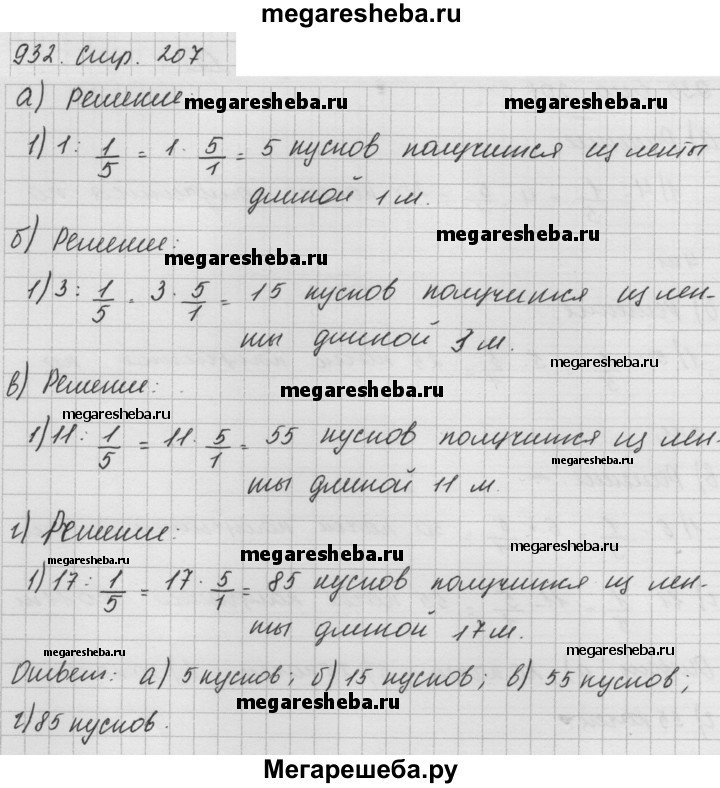 megaresheba.ru
932. стр. 207
а) Решение:
megaresheba.ru
megaresheba.ru
1) 1 : 1/5 = 1 · 5/1 = 5 кусков получится из ленты
длиной 1 м.
megaresheba.ru
б) Решение:
megaresheba.ru
1) 3 : 1/5 = 3 · 5/1 = 15 кусков получится из лен-
ты длиной 3 м.
megaresheba.ru
в) Решение:
megaresheba.ru
megaresheba.ru
1) 11 : 1/5 = 11 · 5/1 = 55 кусков получится из лен-
megaresheba.ru
ты длиной 11 м.
г) Решение:
megaresheba.ru
megaresheba.ru
megaresheba.ru
1) 17 : 1/5 = 17 · 5/1 = 85 кусков получится из лен-
ты длиной 17 м.
megaresheba.ru
megaresheba.ru
Ответ: а) 5 кусков; б) 15 кусков; в) 55 кусков;
megaresheba.ru
г) 85 кусков.
Мегарешеба.ру